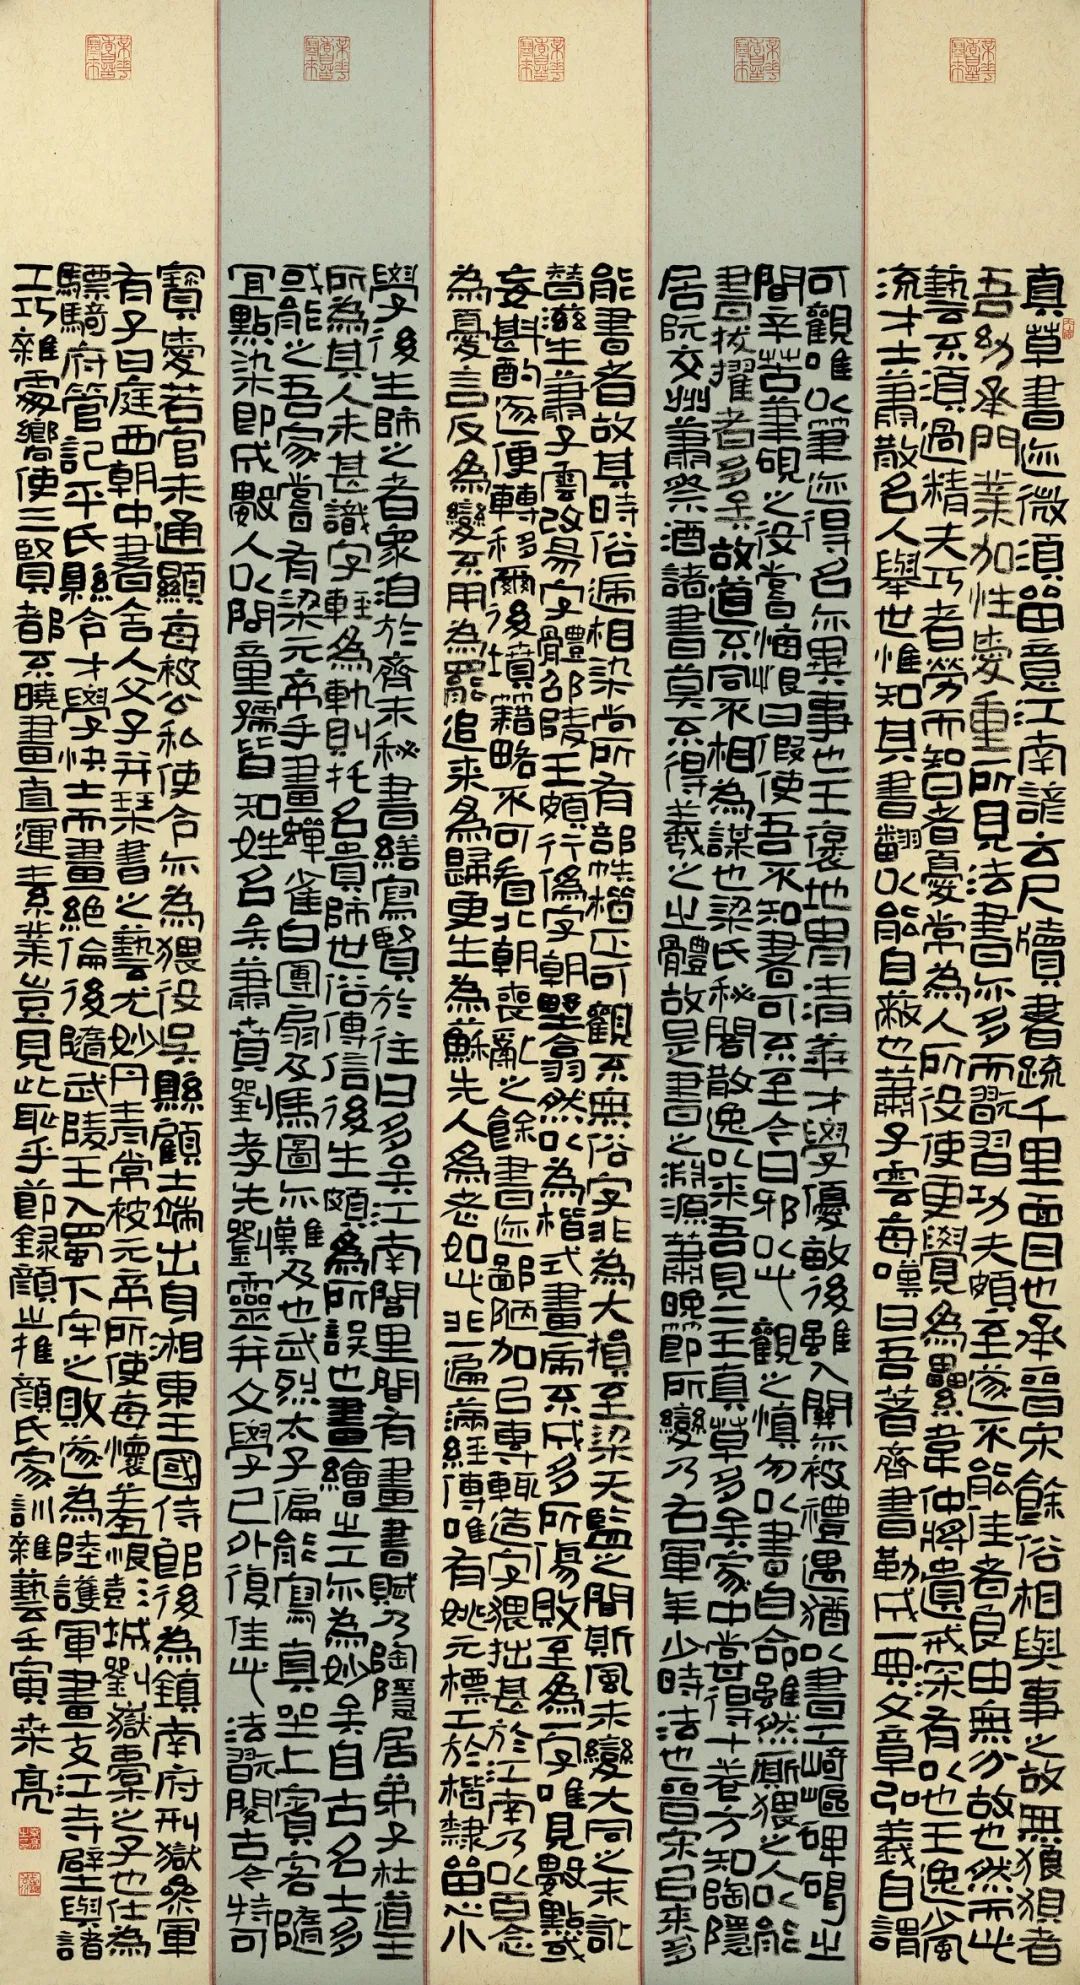 真草書迹微須留意江南諺云尺牘書疏千里面目也承晉宋餘俗相與事之故無狼狽者
吾幼承門業加性愛重所見法書亦多而翫習功夫頗至遂不能佳者良由無分故也然而此
藝不須過精夫巧者勞而智者憂常為人所役使更覺為累韋仲將遺戒深有以也王逸少風
流才士蕭散名人舉世惟知其書翻以能自蔽也蕭子雲每嘆曰吾著齊書勒成一典文章弘義自謂
可觀唯以筆迹得名亦異事也王褒地冑清華才學優敏後雖入關亦被禮遇猶以書工崎嶇碑碣之
間辛苦筆硯之役嘗悔恨曰假使吾不知書可不至今日邪以此觀之慎勿以書自命雖然廝猥之人以能
書拔擢者多矣故道不同不相為謀也梁氏秘閣散逸以來吾見二王真草多矣家中嘗得十卷方知陶隱
居阮交州蕭祭酒諸書莫不得羲之之體故是書之淵源蕭晚節所變乃右軍年少時法也晉宋已來多
能書者故其時俗遞相染尚所有部帙楷正可觀不無俗字非為大損至梁天監之間斯風未變大同之末訛
替滋生蕭子雲改易字體邵陵王頗行偽字朝野翕然以為楷式畫虎不成多所傷敗至為一字唯見數點或
妄斟酌逐便轉移爾後墳籍略不可看北朝喪亂之餘書迹鄙陋加以專輒造字猥拙甚於江南乃以百念
為憂言反為變不用為罷追來為歸更生為蘇先人為老如此非一遍滿經傳唯有姚元標工於楷隸留心小
學後生師之者眾洎於齊末秘書繕寫賢於往日多矣江南閭里間有畫書賦乃陶隱居弟子杜道士
所為其人未甚識字輕為軌則托名貴師世俗傳信後生頗為所誤也畫繪之工亦為妙矣自古名士多
或能之吾家嘗有梁元帝手畫蟬雀白團扇及馬圖亦難及也武烈太子偏能寫真坐上賓客隨
宜點染即成數人以問童孺皆知姓名矣蕭賁劉孝先劉靈并文學已外復佳此法翫閱古今特可
寶愛若官未通顯每被公私使令亦為猥役吳縣顧士端出身湘東王國侍郎後為鎮南府刑獄參軍
有子曰庭西朝中書舍人父子并琴書之藝尤妙丹青常被元帝所使每懷羞恨彭城劉嶽橐之子也仕為
驃騎府管記平氏縣令才學快士而畫絕倫後隨武陵王入蜀下牢之敗遂為陸護軍畫支江寺壁與諸
工巧雜處嚮使三賢都不曉畫直運素業豈見此恥乎節錄顏之推顏氏家訓雜藝壬寅榮亮